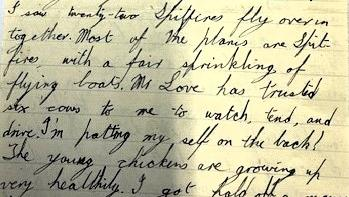 I saw twenty-two Spitfires fly over in
together. Most of the planes are Spit-
fires with a fair sprinkling of
flying boats. Mr Love has trusted
six cows to me to watch, tend, and
drive. I'm patting my self on the back!
The young chickens are growing up
very healthily. I got hold of a